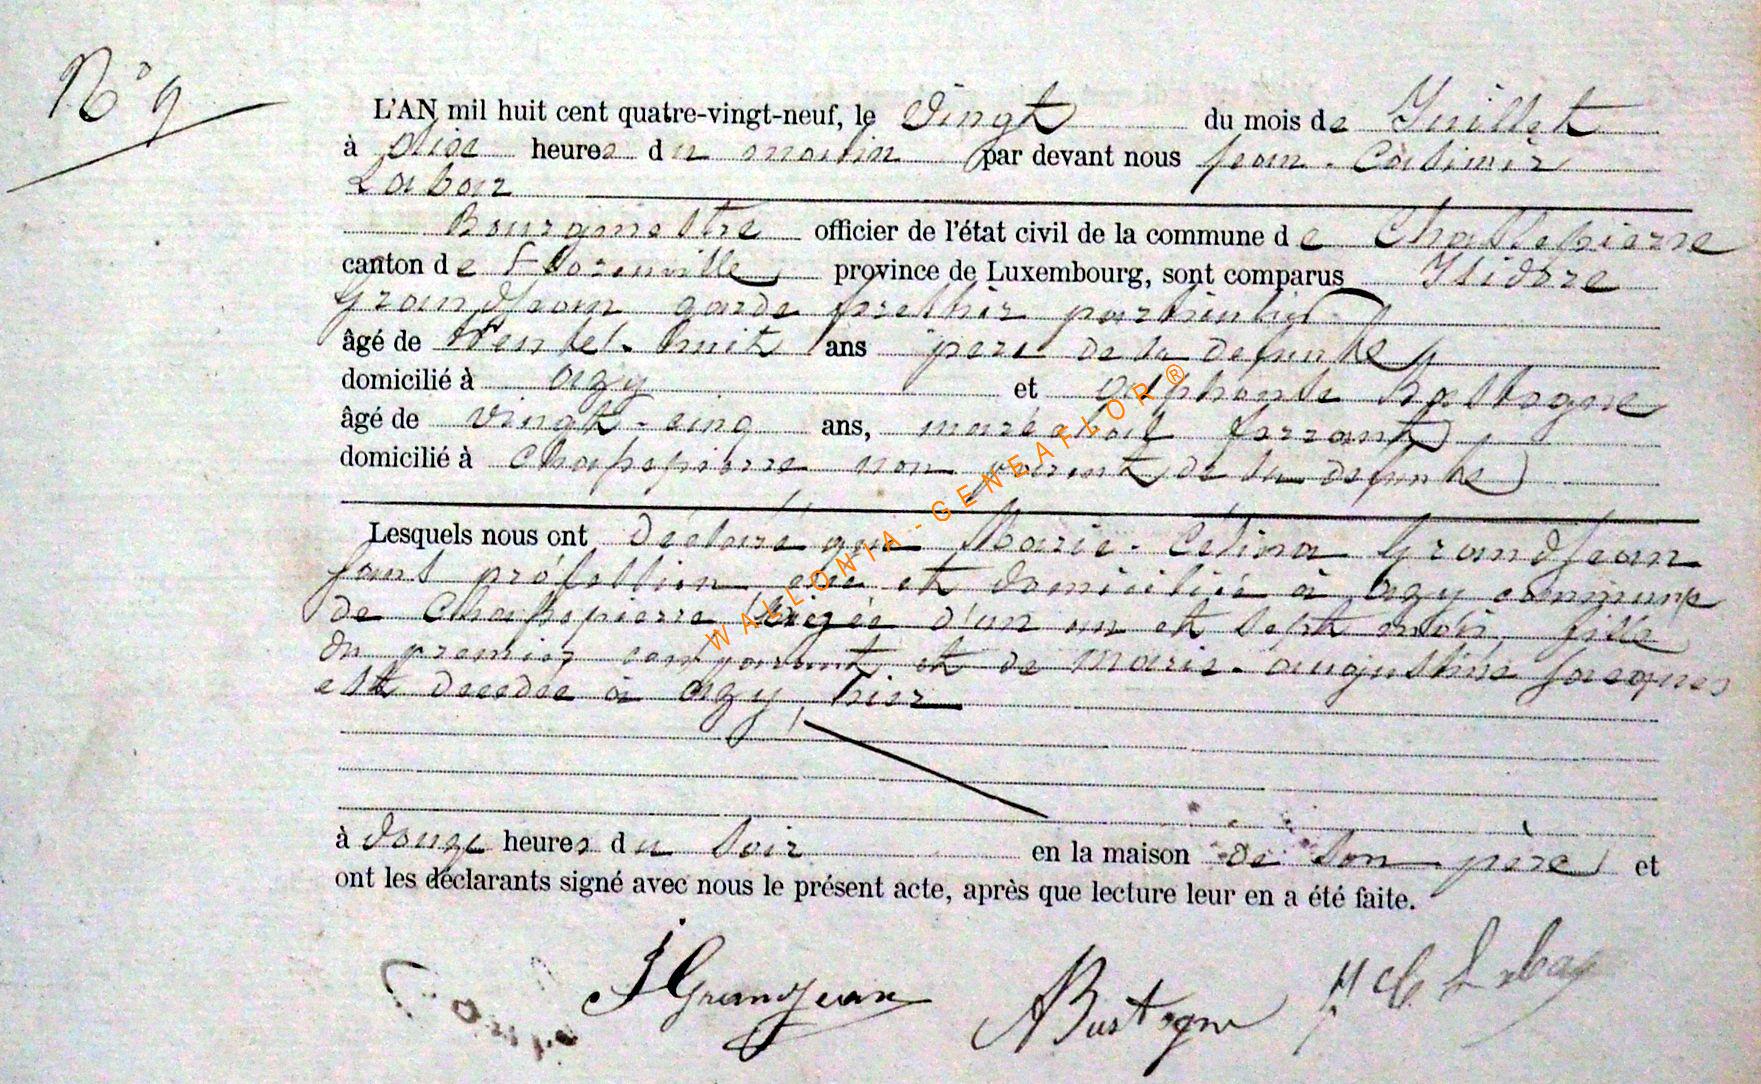 N° 9
L'AN mil huit cent quatre-vingt-neuf, le Vingt du mois de Juillet
à dixe heures du matin par devant nous Jean-Casimir
Labar
Bourgmestre officier de l'état civil de la commune de Chassepierre
canton de Florenville province de Luxembourg, sont comparus Isidore
Grandjean garde forestier particulier
âgé de trente-huit ans père de la defunte
domicilié à Azy et Alphonse Bastogne
âgé de vingt-cinq ans, maréchal ferrant
domicilié à Chassepierre non parent de la defunte
Lesquels nous ont déclaré que Marie-Célina Grandjean
sans proféssion née et domiciliée à Azy commune
de Chassepierre agée d'un an et sept mois, fille
du premier comparant et de Marie-Augustine Jacques
est decedee à Azy, hier
à douze heures du soir en la maison de son père et
ont les déclarants signé avec nous le présent acte, après que lecture leur en a été faite.
J Grandjean ABastogne J C Labar
WALLONIA-GENEAFLOR ®